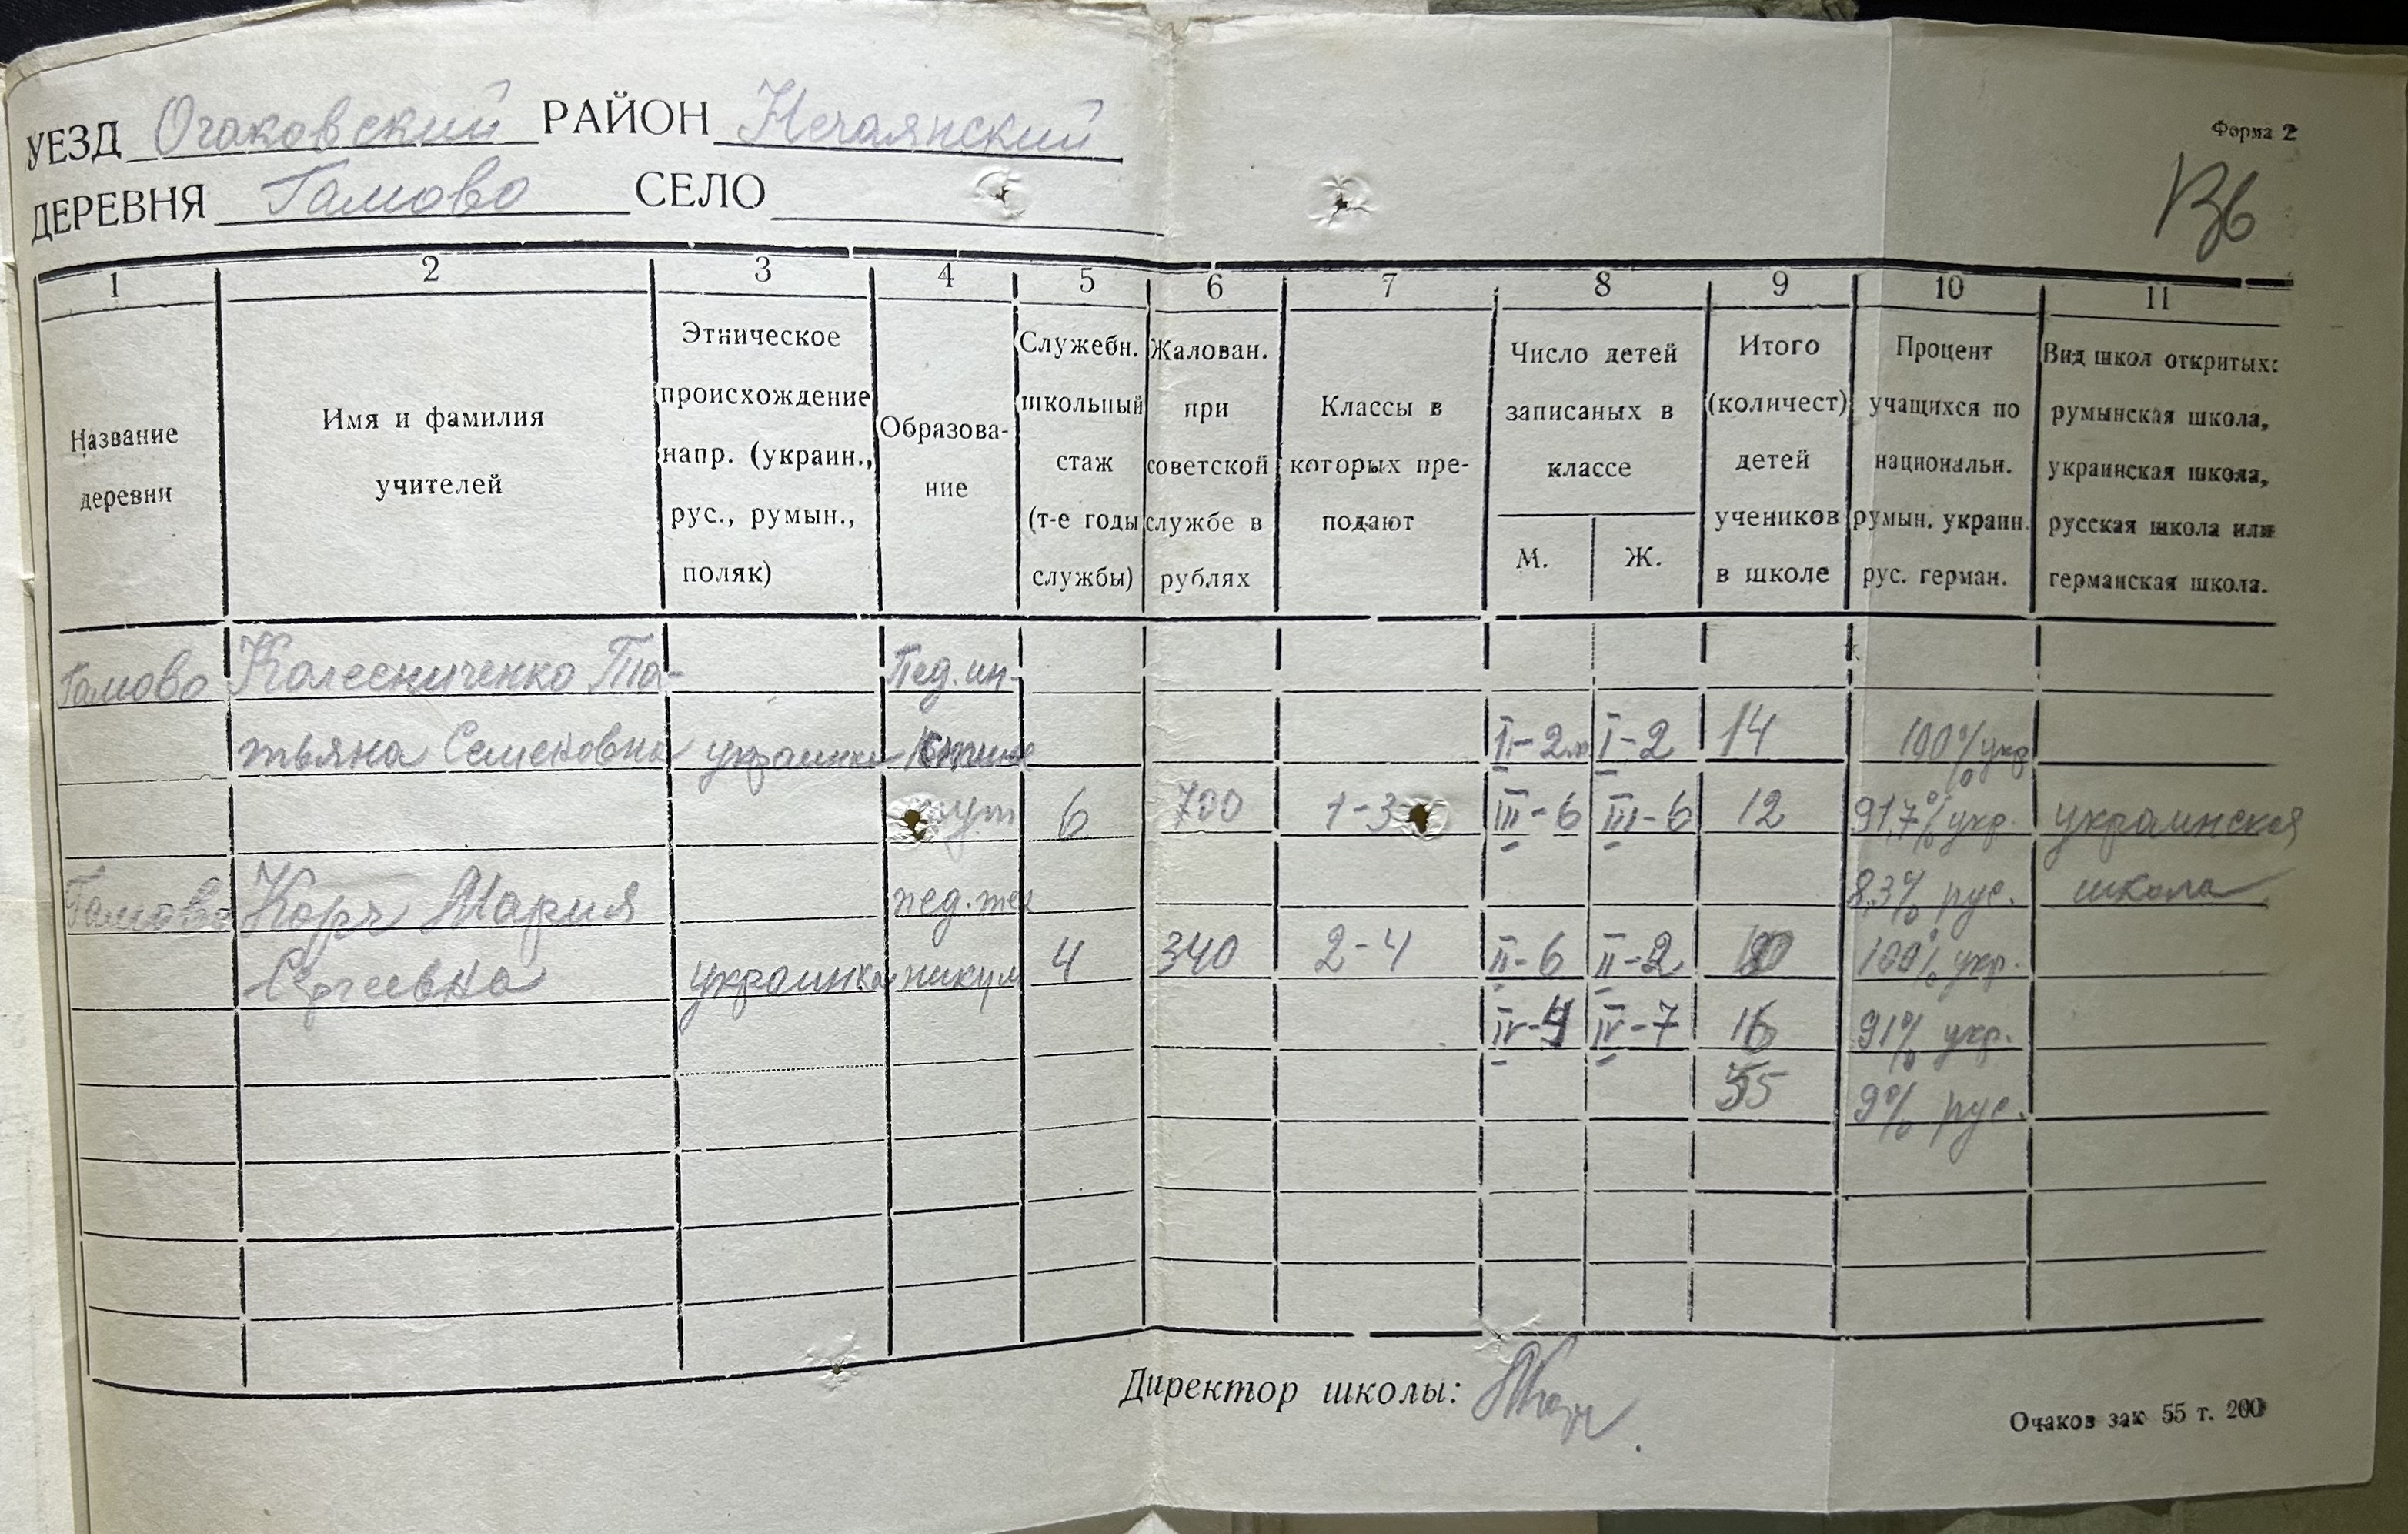 УЕЗД Очаковский РАЙОН Нечаянский
Форма 2
ДЕРЕВНЯ Гамово СЕЛО
1 2 3 4 5 6 7 8 9 10 11
Название деревни
Имя и фамилия учителей
Этническое происхождение напр. (украин., рус., румын., поляк)
Образова- ние
Служебн. школьный стаж (т-е годы службы)
Жалован. при советской службе в рублях
Классы в которых пре- подают
Число детей записаных в классе
М. Ж.
Итого (количест) детей учеников в школе
Процент учащихся по национальн. румын. украин. рус. герман.
Вид школ откритых: румынская школа, украинская школа, русская школа или германская школа.
Гамово Колесниченко Та- Пед. ин-
тьяна Семеновна украинка I-2 14 100% укр
6 700 1-3 III-6 III-6 12 91,7% укр. украинская
Гамово Корч Мария пед. тех 8,3% рус. школа
Сергеевна украинка никум 4 340 2-4 II-6 II-2 100% укр.
IV-9 IV-7 16 91% укр.
55 9% рус.
Директор школы:
Очаков зак 55 т. 200